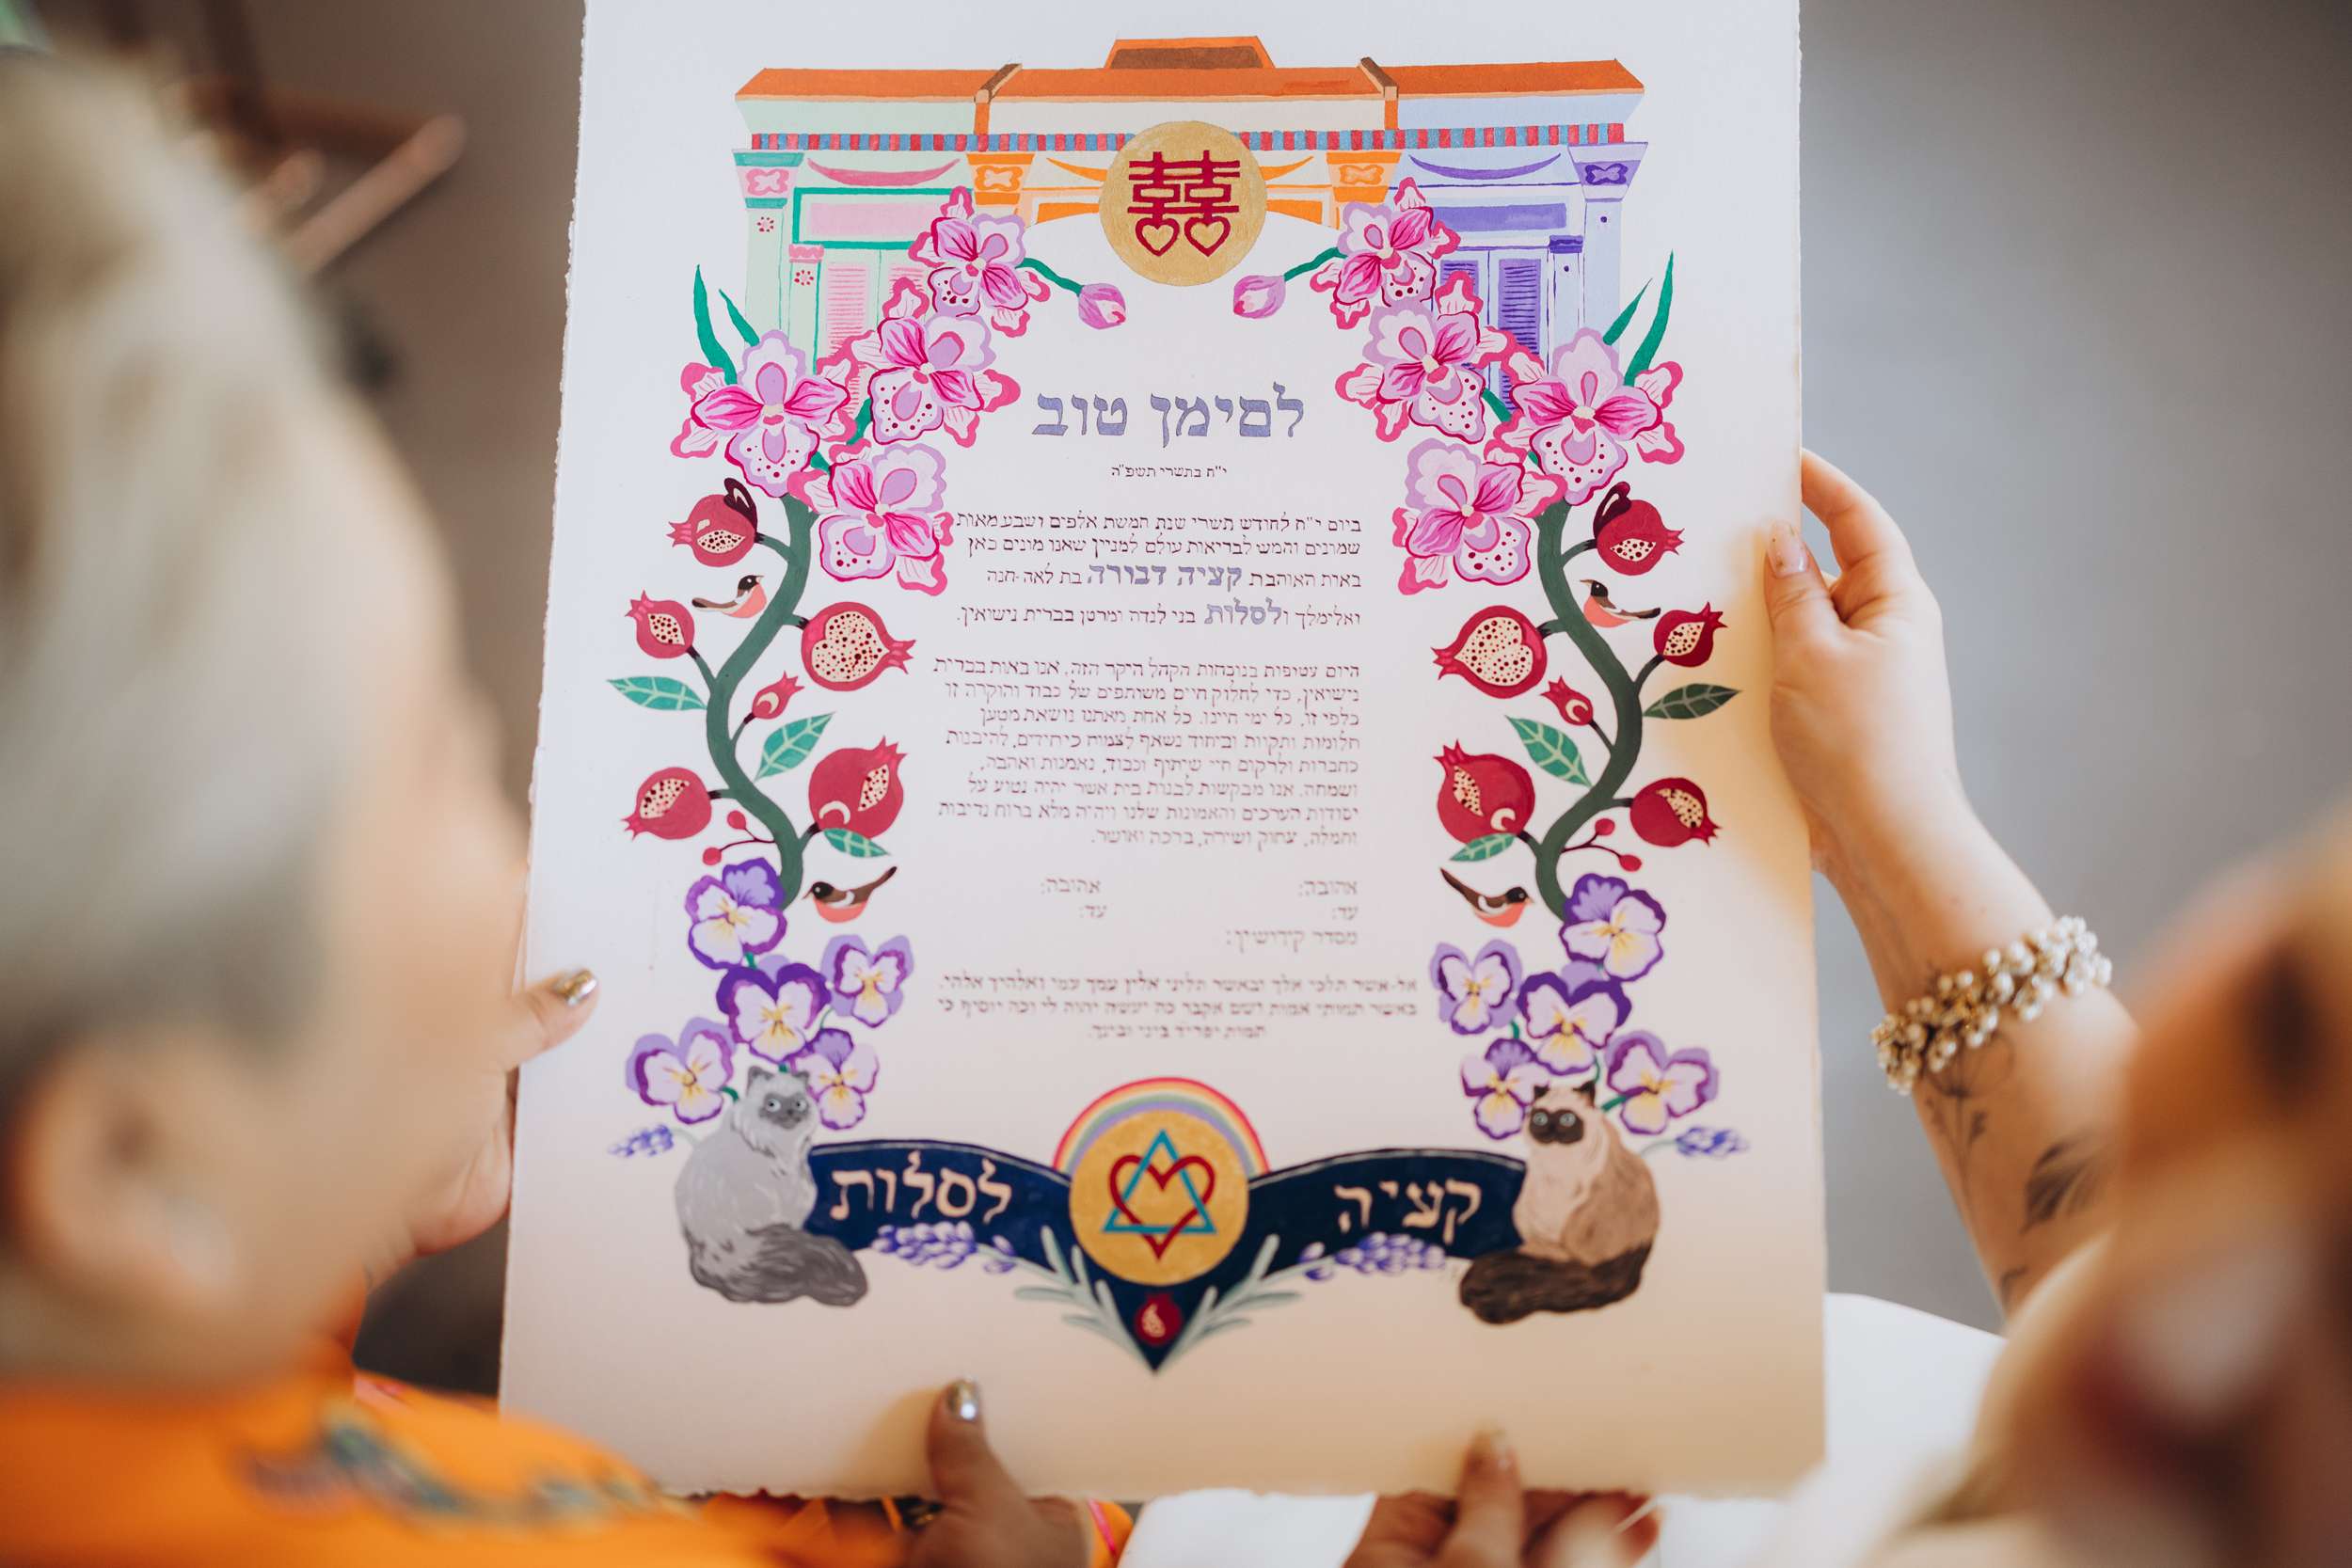 囍
לסימן טוב
י"ח בתשרי תשפ"ה
ביום י"ח לחודש תשרי שנת חמשת אלפים ושבע מאות
שמונים וחמש לבריאות עולם למניין שאנו מונים כאן
באות האוהבת קציה דבורה בת לאה-חנה
ואלימלך ולסלות בני לנדה ומרטן בברית נישואין.
היום עטופות בנוכחות הקהל היקר הזה, אנו באות בברית
נישואין, כדי לחלוק חיים משותפים של כבוד והוקרה זו
כלפי זו, כל ימי חיינו. כל אחת מאתנו נושאת מטען
חלומות ותקוות וביחוד נשאף לצמוח כיחידים, להיבנות
כחברות ולרקום חיי שיתוף וכבוד, נאמנות ואהבה,
ושמחה. אנו מבקשות לבנות בית אשר יהיה נטוע על
יסודות הערכים והאמונות שלנו ויהיה מלא ברוח נדיבות
וחמלה, צחוק ושירה, ברכה ואושר.
אהובה: אהובה:
עד: עד:
מסדר קידושין:
אל-אשר תלכי אלך ובאשר תליני אלין עמך עמי ואלהיך אלהי.
באשר תמותי אמות ושם אקבר כה יעשה יהוה לי וכה יוסיף כי
המות יפריד ביני ובינך.
קציה לסלות